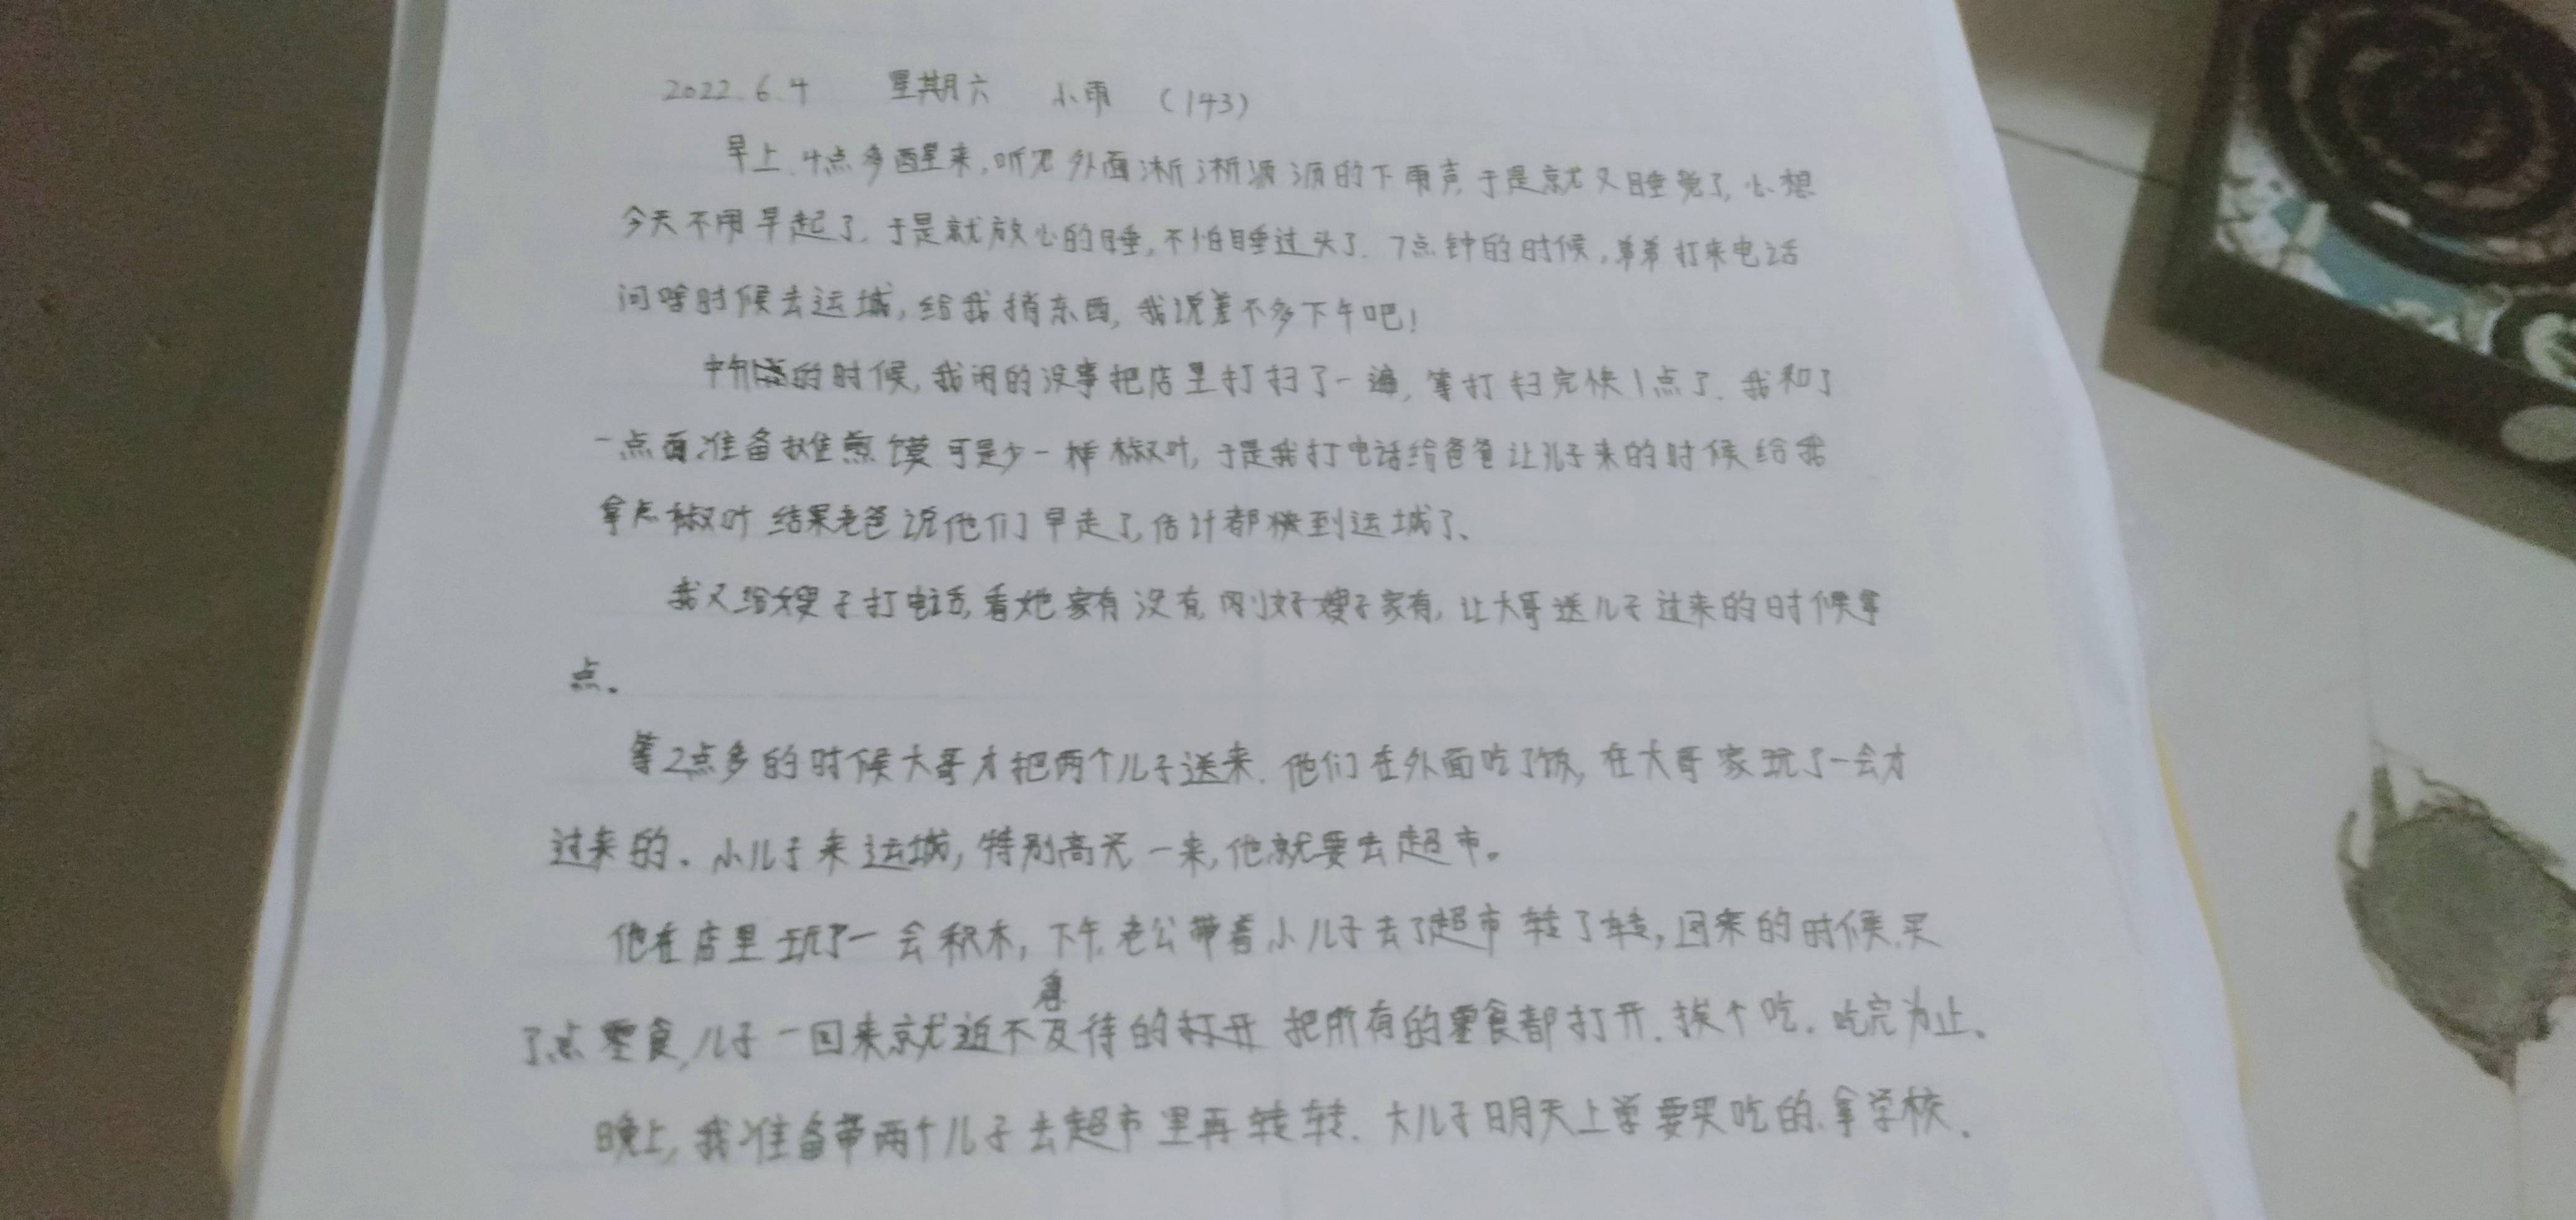 2022.6.4 星期六 小雨 (143)
早上,4点多醒来,听见外面淅淅沥沥的下雨声,于是就又睡觉了,心想
今天不用早起了,于是就放心的睡,不怕睡过头了.7点钟的时候,弟弟打来电话
问啥时候去运城,给我捎东西,我说差不多下午吧!
中午的时候,我闲的没事把店里打扫了一遍,等打扫完快1点了.我和了
一点面准备摊煎馍可是少一样椒叶,于是我打电话给爸爸让儿子来的时候给我
拿点椒叶 结果老爸说他们早走了,估计都快到运城了、
我又给嫂子打电话,看她家有没有,刚好嫂子家有,让大哥送儿子过来的时候拿
点。
等2点多的时候大哥才把两个儿子送来.他们在外面吃了饭,在大哥家玩了一会才
过来的。小儿子来运城,特别高兴一来,他就要去超市。
他在店里玩了一会积木,下午,老公带着小儿子去了超市转了转,回来的时候,买
了点零食,儿子一回来就迫不及待的打开 把所有的零食都打开.挨个吃.吃完为止、
晚上,我准备带两个儿子去超市里再转转.大儿子明天上学要买吃的.拿学校.